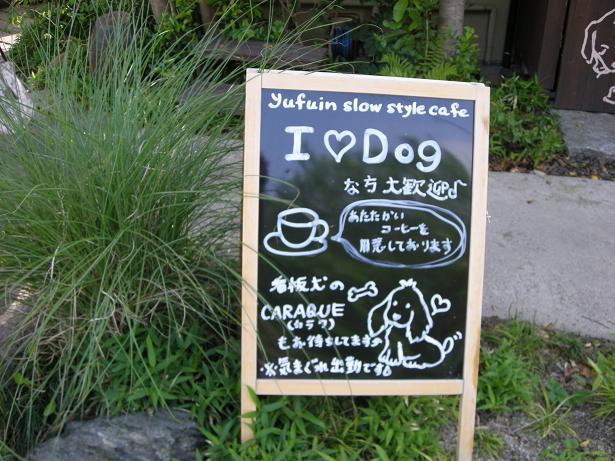 yufuin slow style cafe
I♡Dog
な方大歓迎♪
あたたかい
コーヒーを
用意しております
看板犬の
CARAQUE
(カラク)
もお待ちしてます
※気まぐれ出勤です